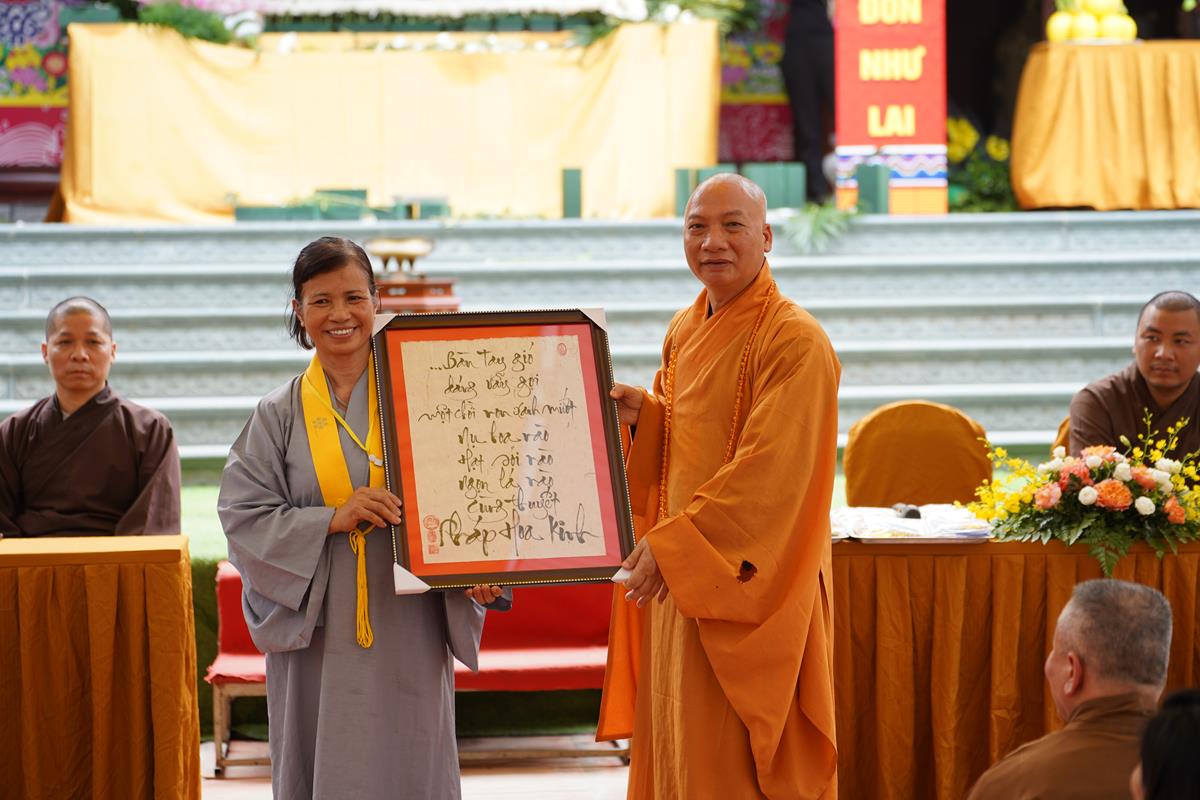 ĐÓN
NHƯ
LAI
...Bàn tay gió
đang vẫy gọi
một chồi non xanh mướt
nụ hoa nào
Hạt sỏi nào
ngọn lá nào
cũng thuyết
Pháp Hoa Kinh